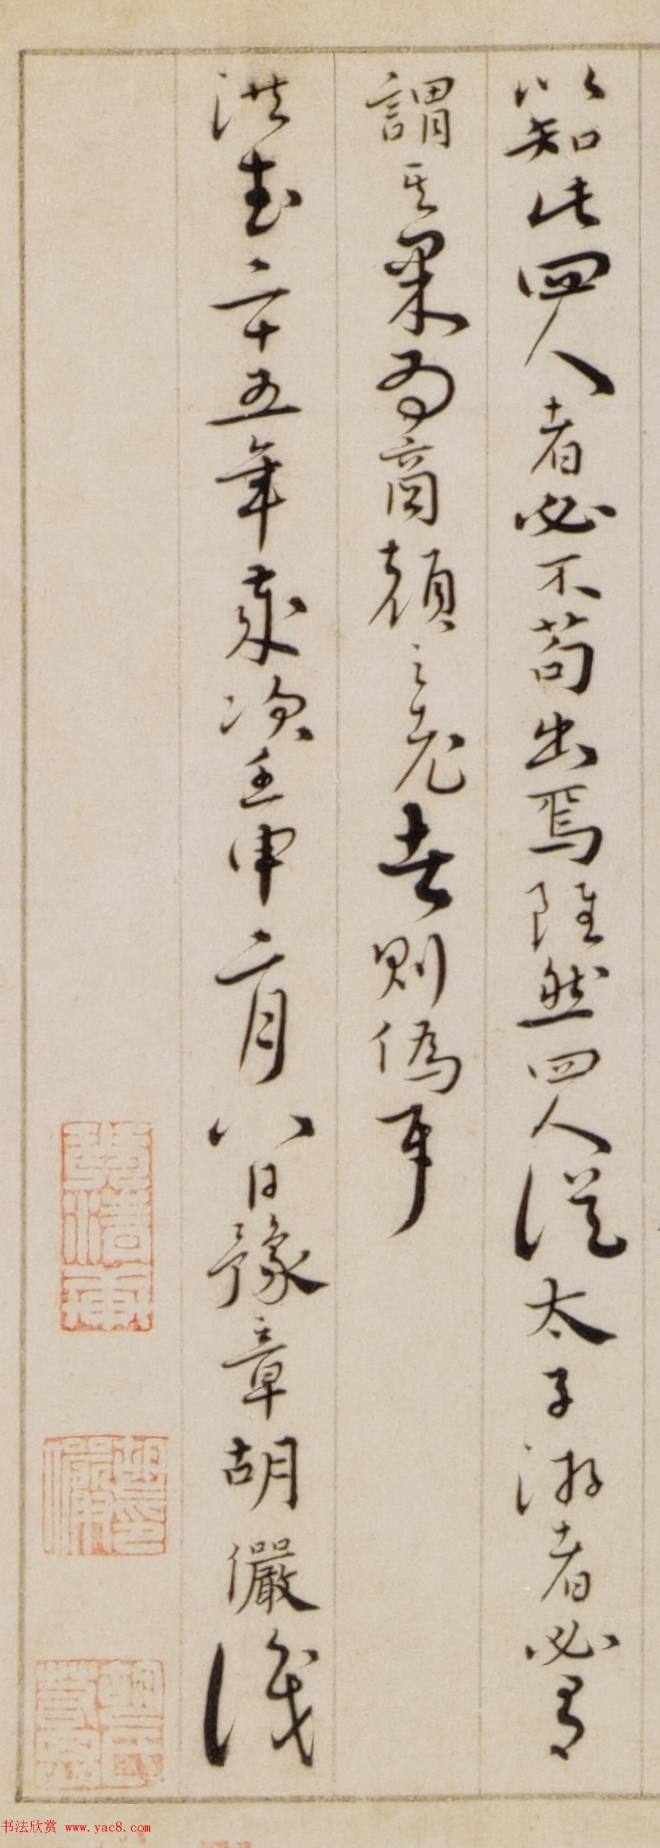 以知此四人者必不苟出焉雖然四人從太子游者必有
謂其果為商顏之老者則偽耳
洪武二十五年歲次壬申二月八日豫章胡儼識
书法欣赏 www.yac8.com